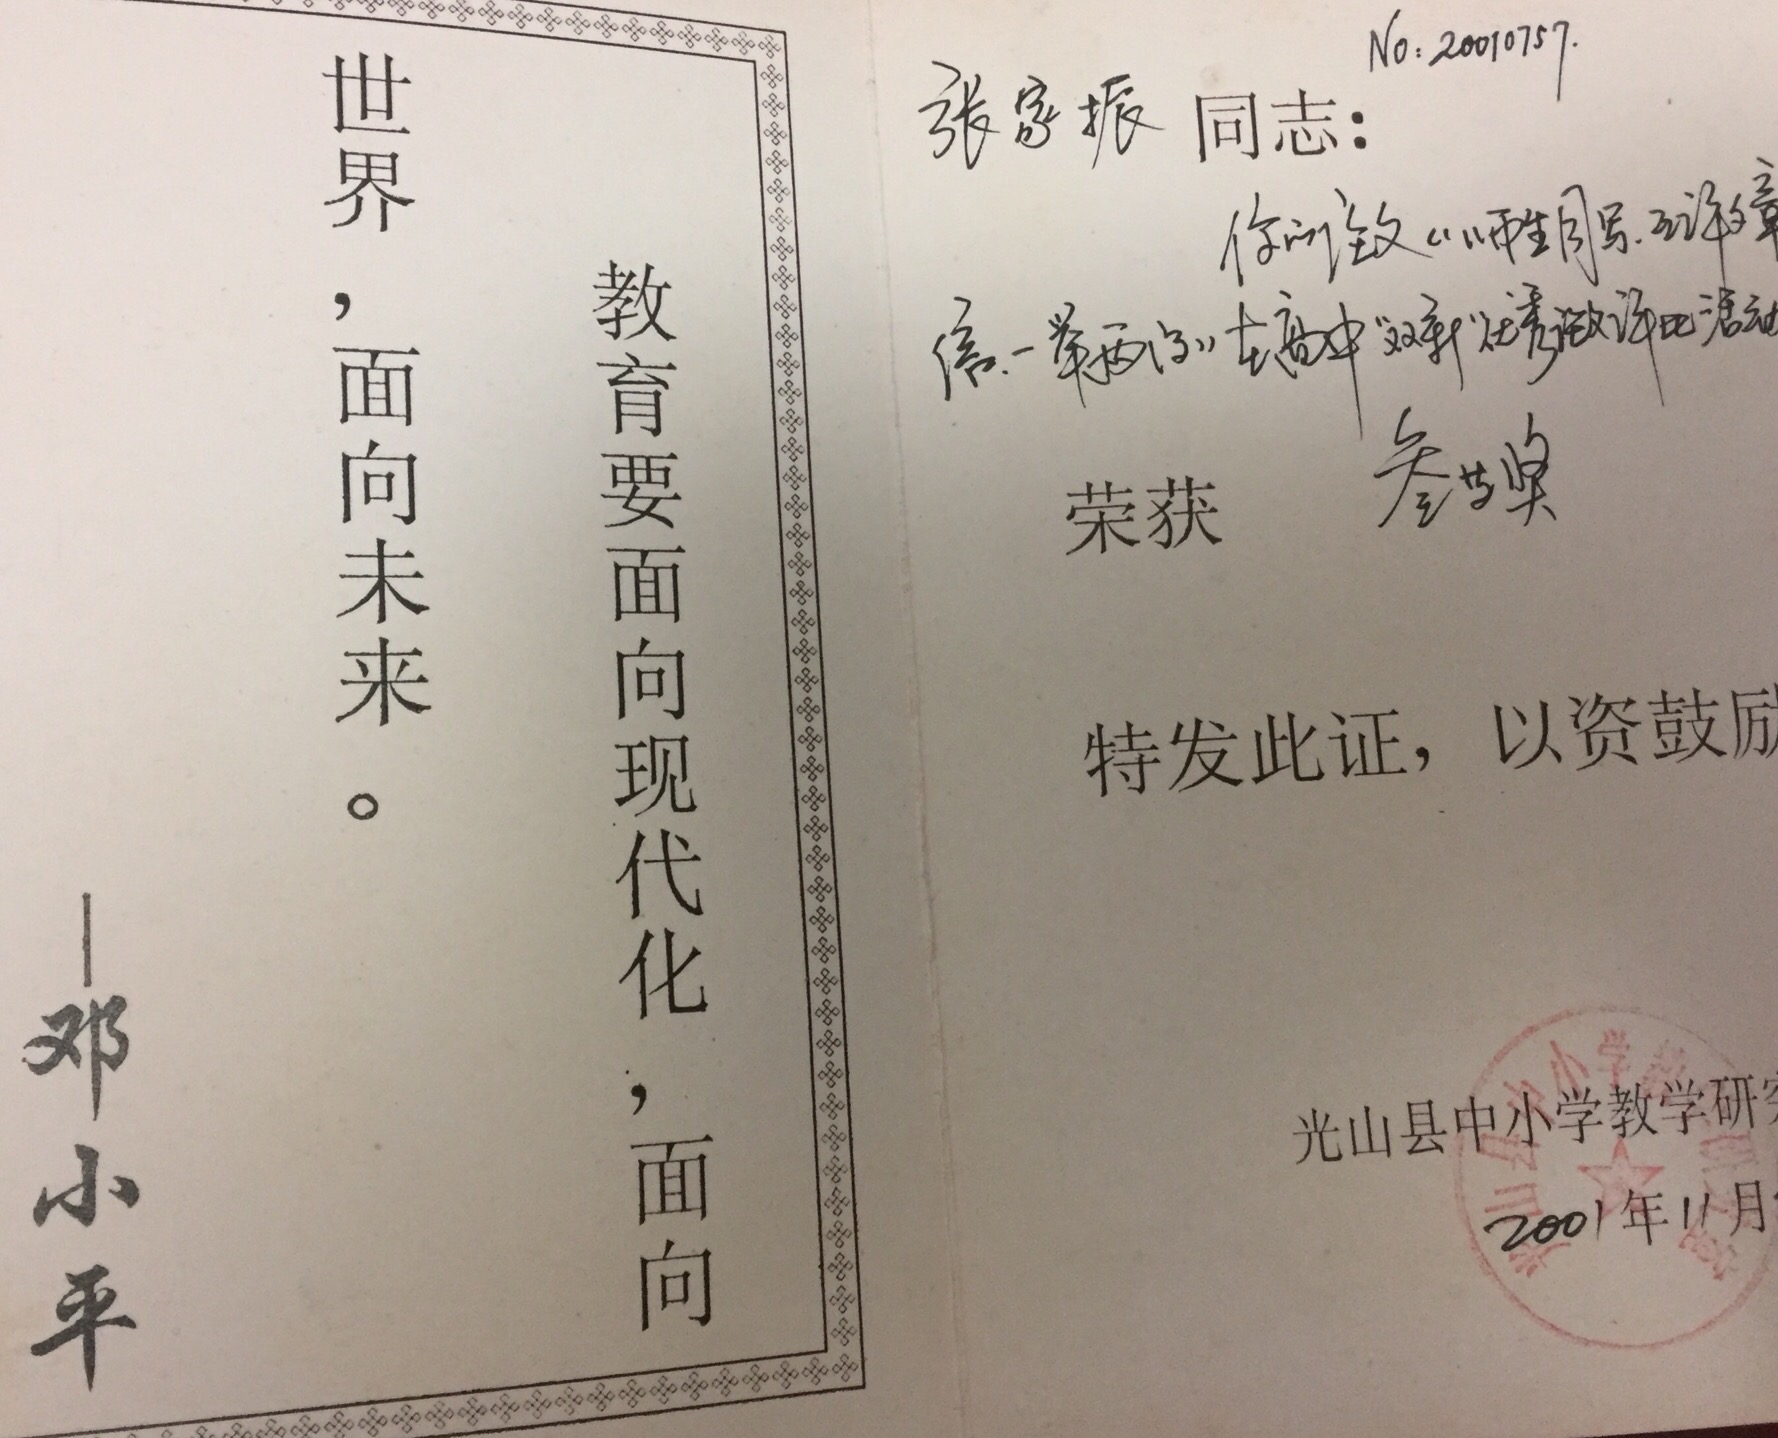 教育要面向现代化，面向
世界，面向未来。
—邓小平
No: 20010757.
张家振 同志：
你的论文《师生同写互评文章
信一举两得》在高中"双新"优秀论文评比活动
荣获 叁等奖
特发此证，以资鼓励
光山县中小学教学研究
2001年11月